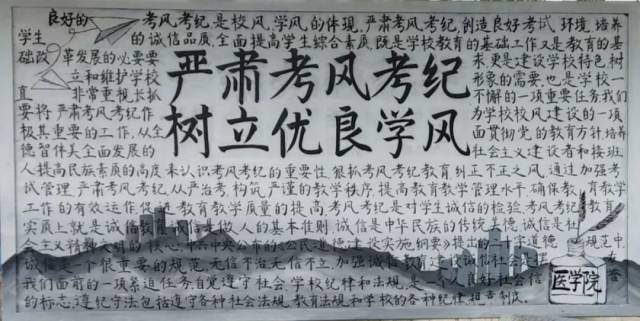 良好的考风、考纪,是校风、学风的体现,严肃考风、考纪,创造良好考试环境,培养
学生的诚信品质,全面提高学生综合素质,既是学校教育的基础工作又是教育的基
础改革发展的必要要求,更是建设学校特色,树
立和维护学校形象的需要,也是学校一
直非常重视长抓不懈的一项重要任务,我们
要将严肃考风考纪作为学校校风建设的一项
极其重要的工作,从全面贯彻党的教育方针,培养
德智体美全面发展的社会主义建设者和接班
严肃考风考纪
树立优良学风
人提高民族素质的高度来认识考风考纪的重要性,狠抓考风考纪教育,纠正不正之风,通过加强考
试管理,严肃考风、考纪,从严治考,构筑严谨的教学秩序,提高教育教学管理水平,确保教育教学
工作的有效运作,促进教育教学质量的提高,考风、考纪是对学生诚信的检验,考风、考纪教育
实质上就是诚信教育,诚信是做人的基本准则,诚信是中华民族的传统美德,诚信是社
会主义精神文明的核心,中共中央公布的《公民道德建设实施纲要》提出的二十字道德规范中,
诚信是一个很重要的规范,无信不治,无信不立,加强诚信教育,建设诚信社会
我们面前的一项紧迫任务,自觉遵守社会、学校纪律和法规,是一个人良好社会信
的标志,遵纪守法包括遵守各种社会法规、教育法规和学校的各种纪律、规章制度。
医学院